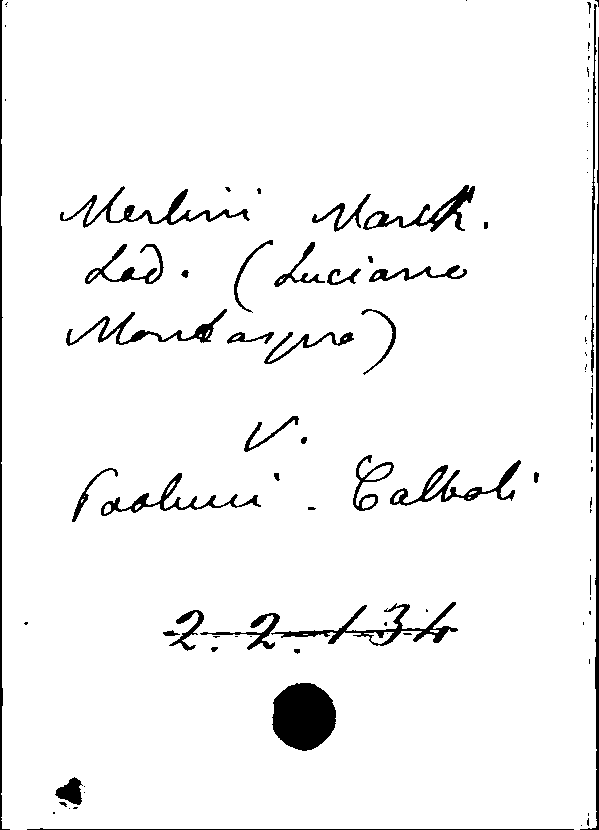 Merlini March.
Lod. (Luciano
Montaspro)
V.
Paolucci - Calboli
2.2.134